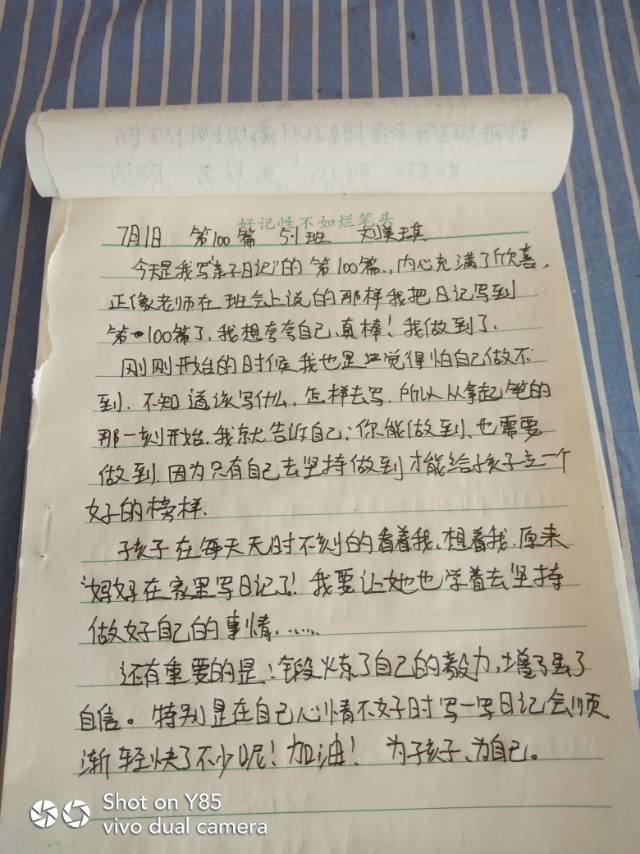 好记性不如烂笔头
7月1日 第100篇 5.1班 刘美琪
今天是我写“亲子日记”的第100篇.，内心充满了欣喜，
正像老师在班会上说的那样我把日记写到
第100篇了，我想夸夸自己，真棒！我做到了．
刚刚开始的时候我也是只觉得怕自己做不
到．不知道该写什么，怎样去写．所以从拿起笔的
那一刻开始，我就告诉自己：你能做到，也需要
做到．因为只有自己去坚持做到才能给孩子立一个
好的榜样．
孩子在每天天时不刻的看着我，想着我．原来
“妈妈在家里写日记了！我要让她也学着去坚持
做好自己的事情．……
还有重要的是：锻炼了自己的毅力，增了
自信。特别是在自己心情不好时写一写日记会顺
渐轻快了不少呢！加油！ 为孩子、为自己。
Shot on Y85
vivo dual camera